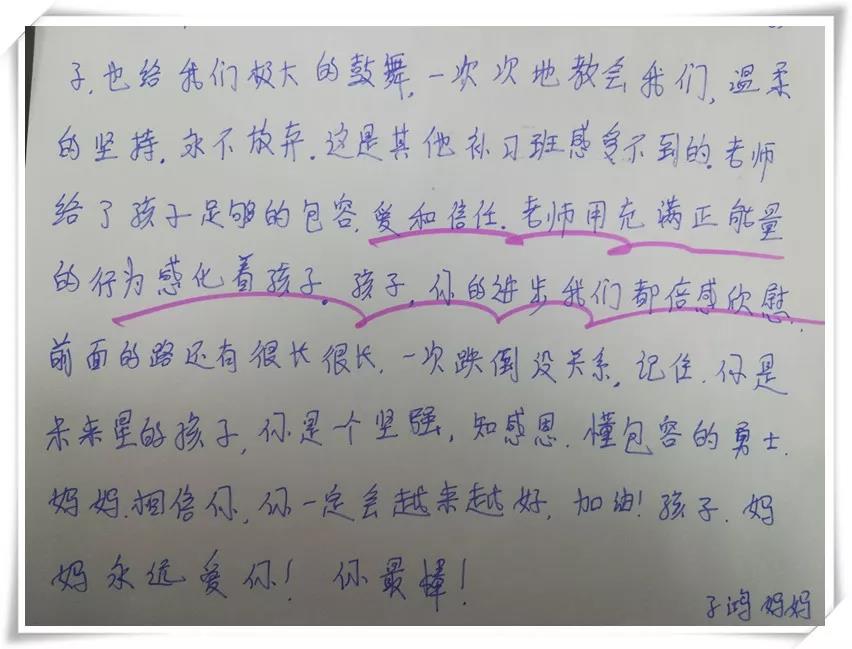 子,也给我们极大的鼓舞,一次次地教会我们,温柔
的坚持,永不放弃.这是其他补习班感受不到的.老师
给了孩子足够的包容,爱和信任.老师用充满正能量
的行为感化着孩子。孩子,你的进步我们都倍感欣慰.
前面的路还有很长很长.一次跌倒没关系,记住.你是
未来星的孩子,你是个坚强,知感恩.懂包容的勇士.
妈妈相信你,你一定会越来越好,加油!孩子.妈
妈永远爱你!你最棒!
子鸿妈妈